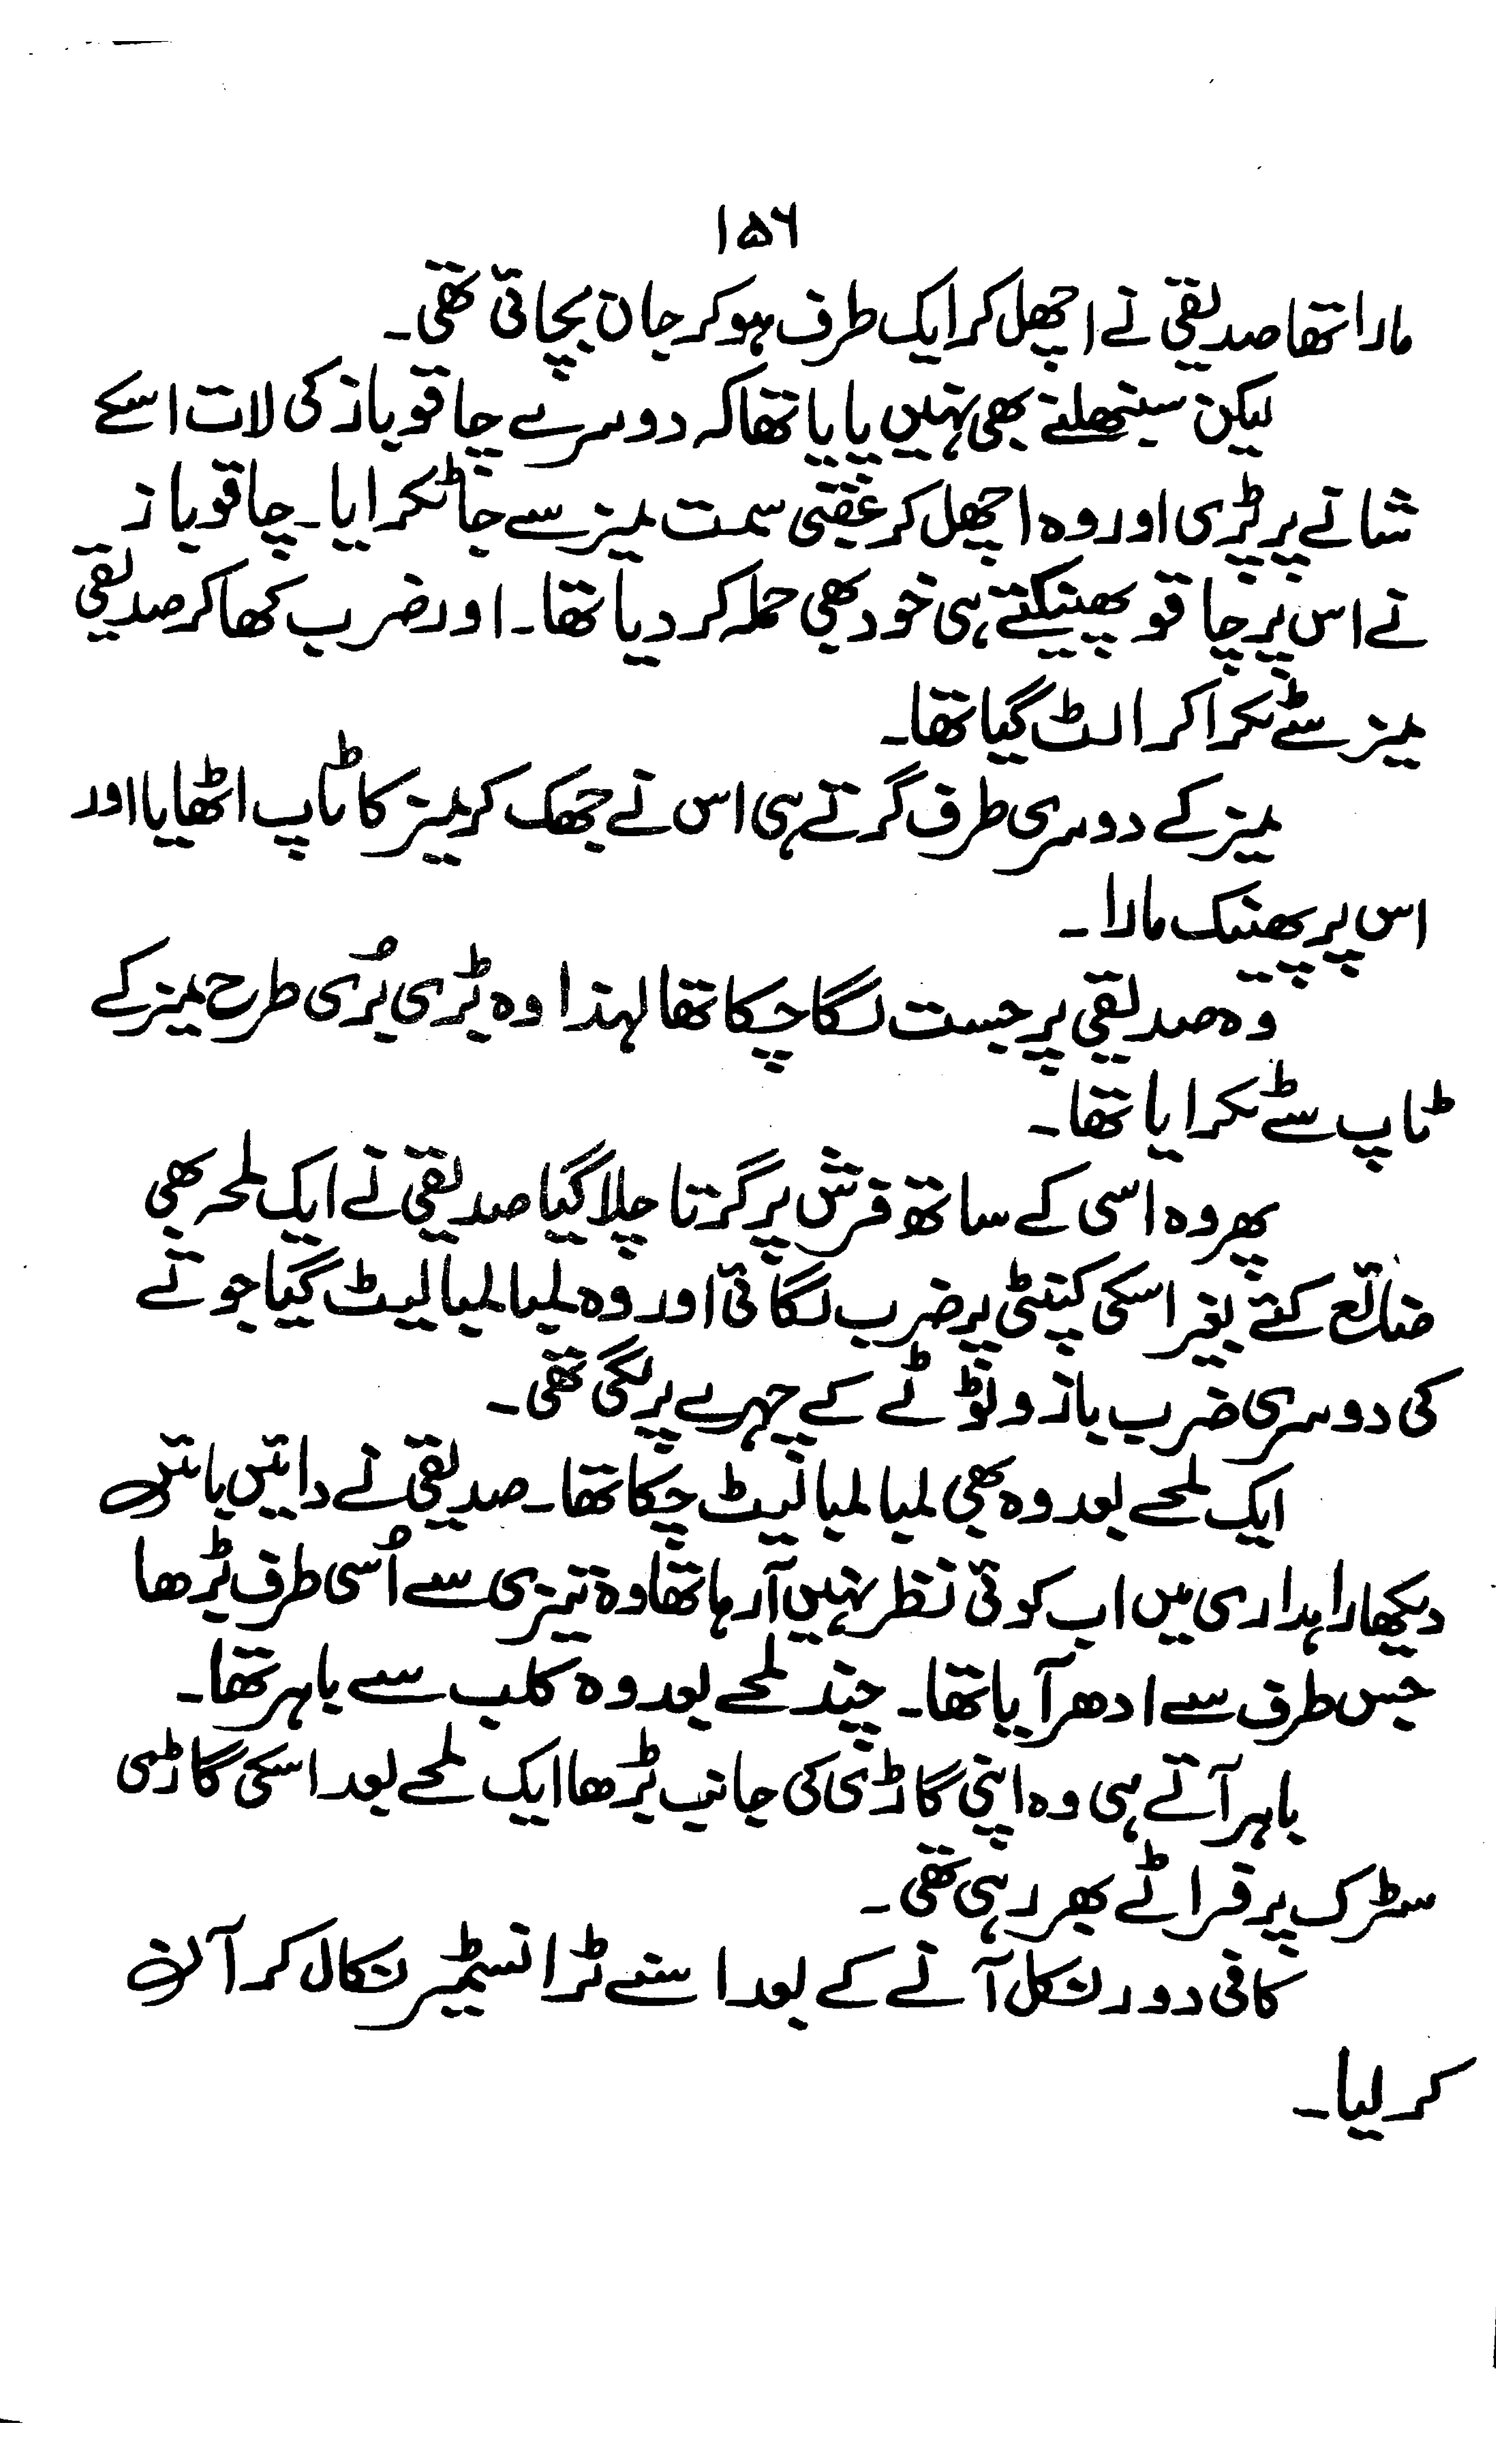 ۱۵۶
مارا تھا صدیقی نے اچھل کر ایک طرف ہو کر جان بچائی تھی۔
لیکن سنبھلنے بھی نہیں پایا تھا کہ دوسرے چاقو باز کی لات اسکے
شانے پر پڑی اور وہ اچھل کر عقبی سمت میز سے جا ٹکرایا۔ چاقو باز
نے اس پر چاقو پھینکتے ہی خود بھی حملہ کر دیا تھا۔ اور ضرب کھا کر صدیقی
میز سے ٹکرا کر الٹ گیا تھا۔
میز کے دوسری طرف گرتے ہی اس نے جھک کر میز کا ٹاپ اٹھایا اور
اس پر پھینک مارا۔
وہ صدیقی پر جست لگا چکا تھا لہذا وہ بڑی بُری طرح میز کے
ٹاپ سے ٹکرایا تھا۔
پھر وہ اسی کے ساتھ فرش پر گرتا چلا گیا صدیقی نے ایک لمحہ بھی
ضائع کئے بغیر اسکی کنپٹی پر ضرب لگائی اور وہ لمبا لمبا لیٹ گیا جوتے
کی دوسری ضرب بازو ٹوٹے کے چہرے پر لگی تھی۔
ایک لمحے بعد وہ بھی لمبا لمبا لیٹ چکا تھا۔ صدیقی نے دائیں بائیں
دیکھا راہداری میں اب کوئی نظر نہیں آرہا تھا وہ تیزی سے اُسی طرف بڑھا
جس طرف سے ادھر آیا تھا۔ چند لمحے بعد وہ کلب سے باہر تھا۔
باہر آتے ہی وہ اپنی گاڑی کی جانب بڑھا ایک لمحے بعد اسکی گاڑی
سڑک پر فراٹے بھر رہی تھی۔
کافی دور نکل آنے کے بعد اسنے ٹرانسمیٹر نکال کر آن
کر لیا۔